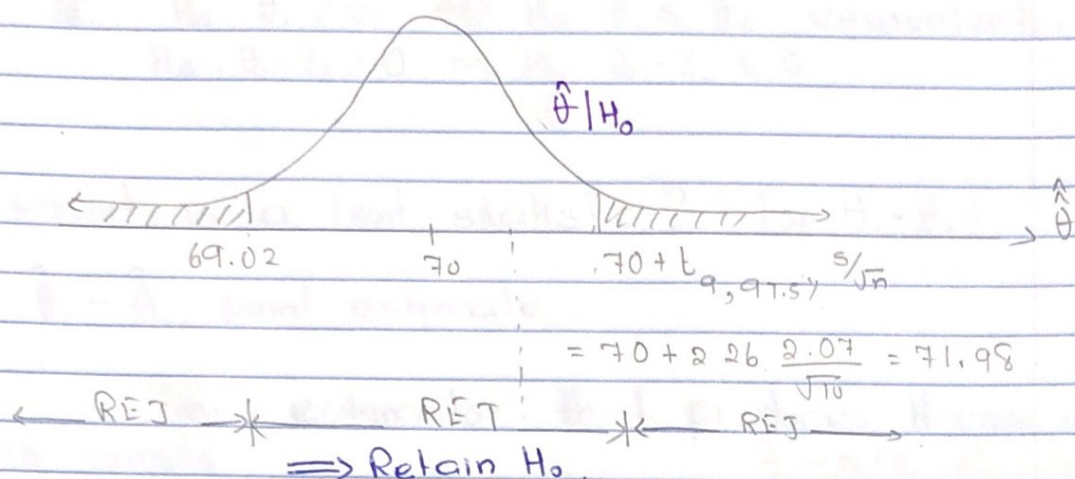 θ̂|H₀
θ̂̂
69.02 70 70 + t₉,₉₇.₅% s/√n
= 70 + 2 26 2.07/√10 = 71.98
REJ RET REJ
⇒ Retain H₀.